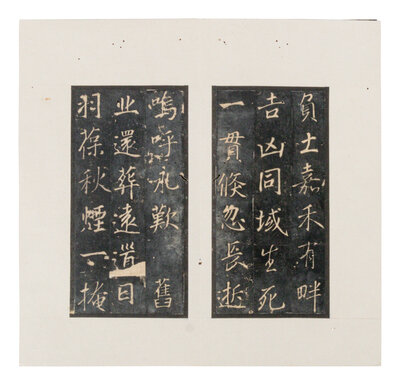 負土嘉禾有畔
吉凶同域生死
一貫倏忽長逝
嗚呼永歎 舊
丘還葬遠道日
羽葆秋煙一掩